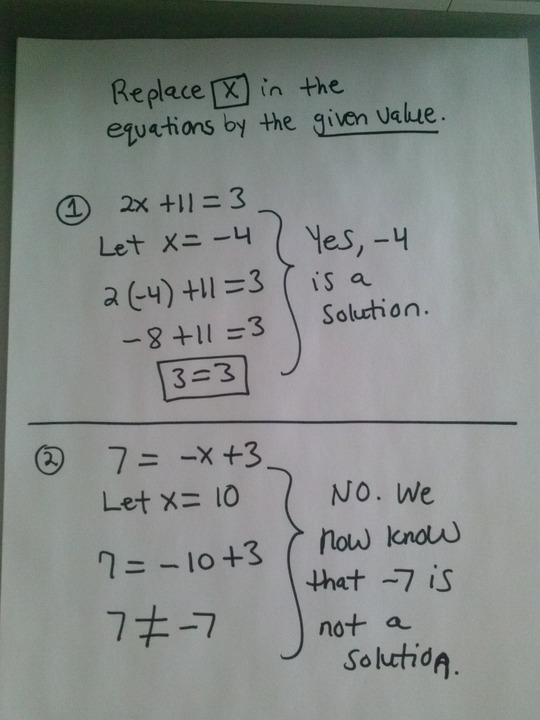 Replace X in the
equations by the given value.
① 2x +11 = 3
Let x = -4
2(-4) +11 = 3
-8 +11 = 3
3 = 3
Yes, -4
is a
solution.
② 7 = -x +3
Let x = 10
7 = -10 +3
7 ≠ -7
No. We
now know
that -7 is
not a
solution.